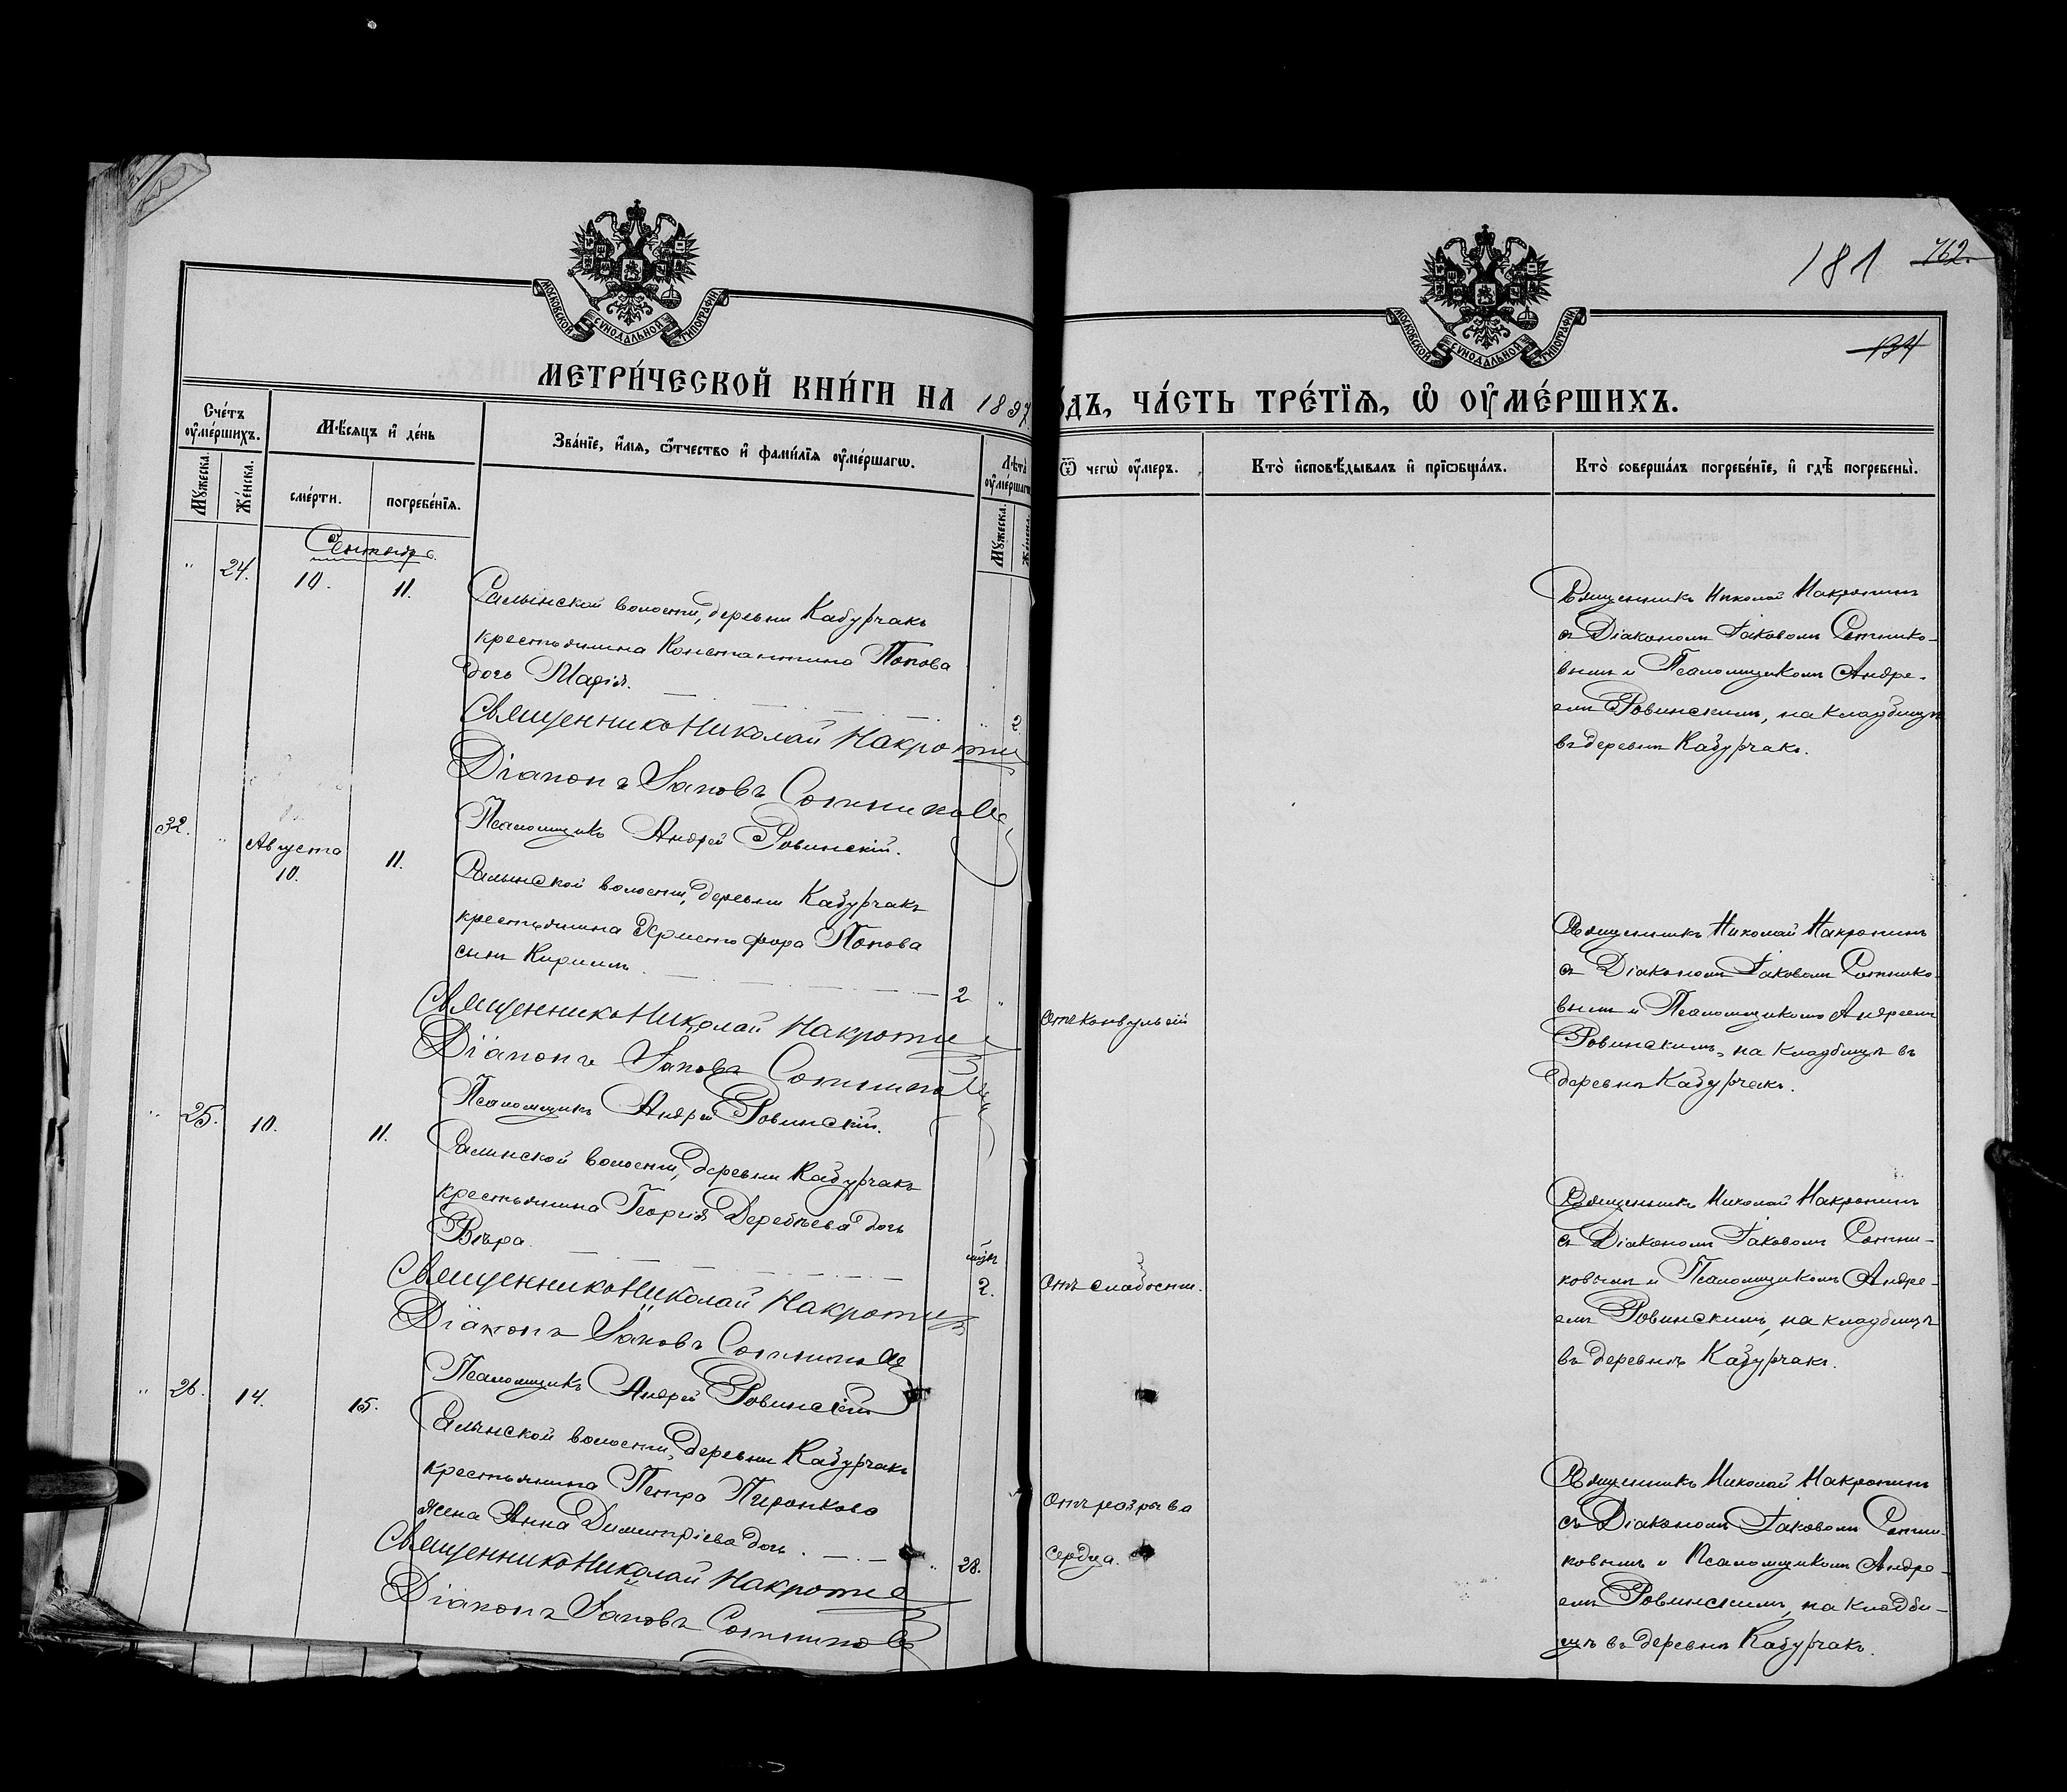 181 762.
134
МОСКОВСКОЙ СУНОДАЛЬНОЙ ТИПОГРАФІИ
МОСКОВСКОЙ СУНОДАЛЬНОЙ ТИПОГРАФІИ
МЕТРИ́ЧЕСКОЙ КНИ́ГИ НА 1897
ДЪ, ЧА́СТЬ ТРЕ́ТЇѦ, Ѡ ОУМЕ́РШИХЪ.
Сче́тъ оумершихъ.
Мѣсяцъ и де́нь
Зва́нїе, имя, ѿчество и фами́лїя оумершагѡ.
Лѣта оумершагѡ
Ѿ чегѡ оумеръ.
Кто исповѣдывалъ и прїѡбщалъ.
Кто соверша́лъ погребе́нїе, и гдѣ погребены.
Мужеска.
Женска.
сме́рти.
погребе́нїя.
Мужеска.
Женска.
Сентябр
" 24. 10. 11.
волости, деревни Кабурчакъ
крестьянина Константина Попова
дочь Марія.
" 2
Священникъ Николай Накропи
Діаконъ Іаковъ Сотников
Псаломщикъ Андрей Ровинскій.
Священникъ Николай Накропинъ
съ Діакономъ Іаковомъ Сотнико-
вымъ и Псаломщикомъ Андре-
емъ Ровинскимъ, на кладбищѣ
въ деревнѣ Кабурчакъ.
32. " Августа 10. 11.
волости, деревни Кабурчакъ
крестьянина Христофора Попова
сынъ Кириллъ.
2 "
Священникъ Николай Накропи
Діаконъ Іаковъ Сотников
Псаломщикъ Андрей Ровинскій.
Отъ конвульсій
Священникъ Николай Накропинъ
съ Діакономъ Іаковомъ Сотнико-
вымъ и Псаломщикомъ Андреемъ
Ровинскимъ, на кладбищѣ въ
деревнѣ Кабурчакъ.
" 25. 10. 11.
волости, деревни Кабурчакъ
крестьянина Георгія дочь
Вѣра.
2.
Священникъ Николай Накропи
Діаконъ Іаковъ Сотников
Псаломщикъ Андрей Ровинскій
Отъ слабости.
Священникъ Николай Накропинъ
съ Діакономъ Іаковомъ Сотни-
ковымъ и Псаломщикомъ Андре-
емъ Ровинскимъ, на кладбищѣ
въ деревнѣ Кабурчакъ.
" 26. 14. 15.
волости, деревни Кабурчакъ
крестьянина Петра
жена Анна Димитріева дочь.
" 28.
Священникъ Николай Накропи
Діаконъ Іаковъ Сотников
Отъ разрыва
сердца.
Священникъ Николай Накропинъ
съ Діакономъ Іаковомъ Сотни-
ковымъ и Псаломщикомъ Андре-
емъ Ровинскимъ, на кладби-
щѣ въ деревнѣ Кабурчакъ.